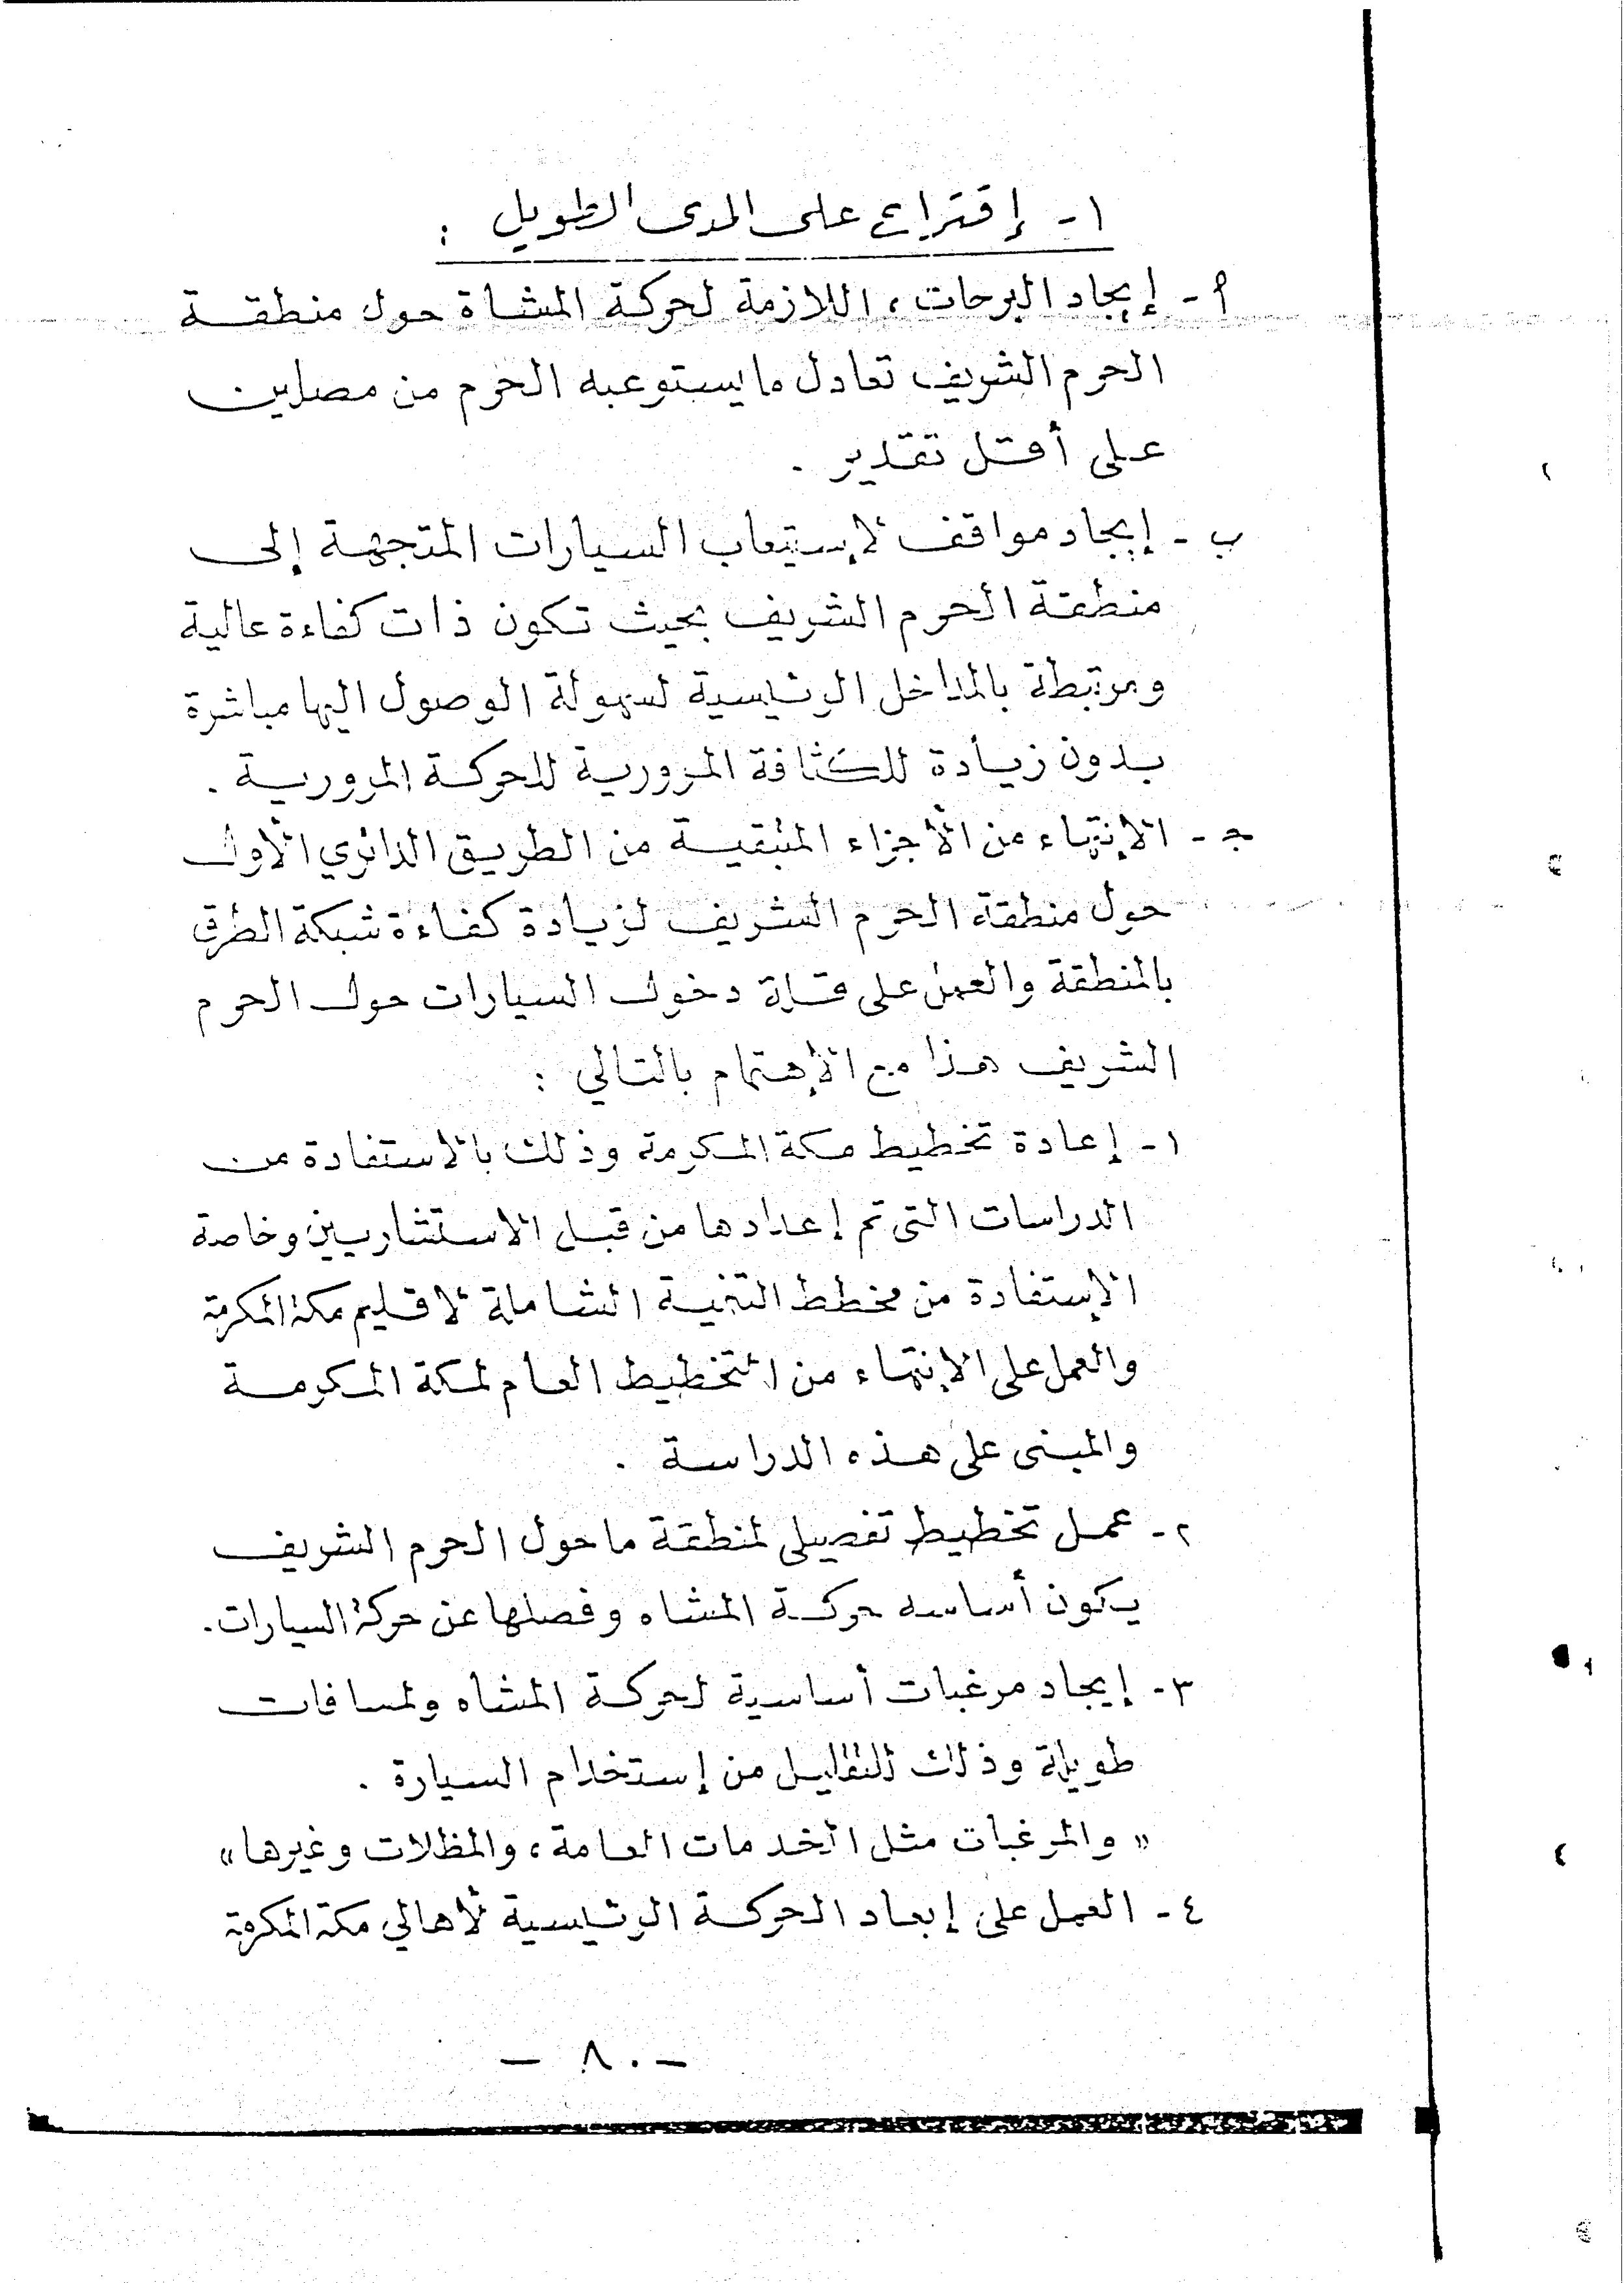 ١- إقتراح على المدى الطويل :
أ- إيجاد البرحات، اللازمة لحركة المشاة حول منطقة
الحرم الشريف تعادل ما يستوعبه الحرم من مصلين
على أقل تقدير .
ب- إيجاد مواقف لإستيعاب السيارات المتجهة إلى
منطقة الحرم الشريف بحيث تكون ذات كفاءة عالية
ومرتبطة بالمداخل الرئيسية لسهولة الوصول اليها مباشرة
بدون زيادة للكثافة المرورية للحركة المرورية .
جـ- الإنتهاء من الأجزاء المتبقية من الطريق الدائري الأول
حول منطقة الحرم الشريف لزيادة كفاءة شبكة الطرق
بالمنطقة والعمل على قلة دخول السيارات حول الحرم
الشريف هذا مع الإهتمام بالتالي :
١- إعادة تخطيط مكة المكرمة وذلك بالاستفادة من
الدراسات التى تم إعدادها من قبل الاستشاريين وخاصة
الإستفادة من مخطط التنمية الشاملة لاقليم مكة المكرمة
والعمل على الإنتهاء من التخطيط العام لمكة المكرمة
والمبنى على هذه الدراسة .
٢- عمل تخطيط تفصيلى لمنطقة ما حول الحرم الشريف
يكون أساسه حركة المشاه وفصلها عن حركة السيارات.
٣- إيجاد مرغبات أساسية لحركة المشاه ولمسافات
طويلة وذلك للتقليل من إستخدام السيارة .
« والمرغبات مثل الخدمات العامة، والمظلات وغيرها»
٤- العمل على إبعاد الحركة الرئيسية لأهالي مكة المكرمة
- ٨٠ -